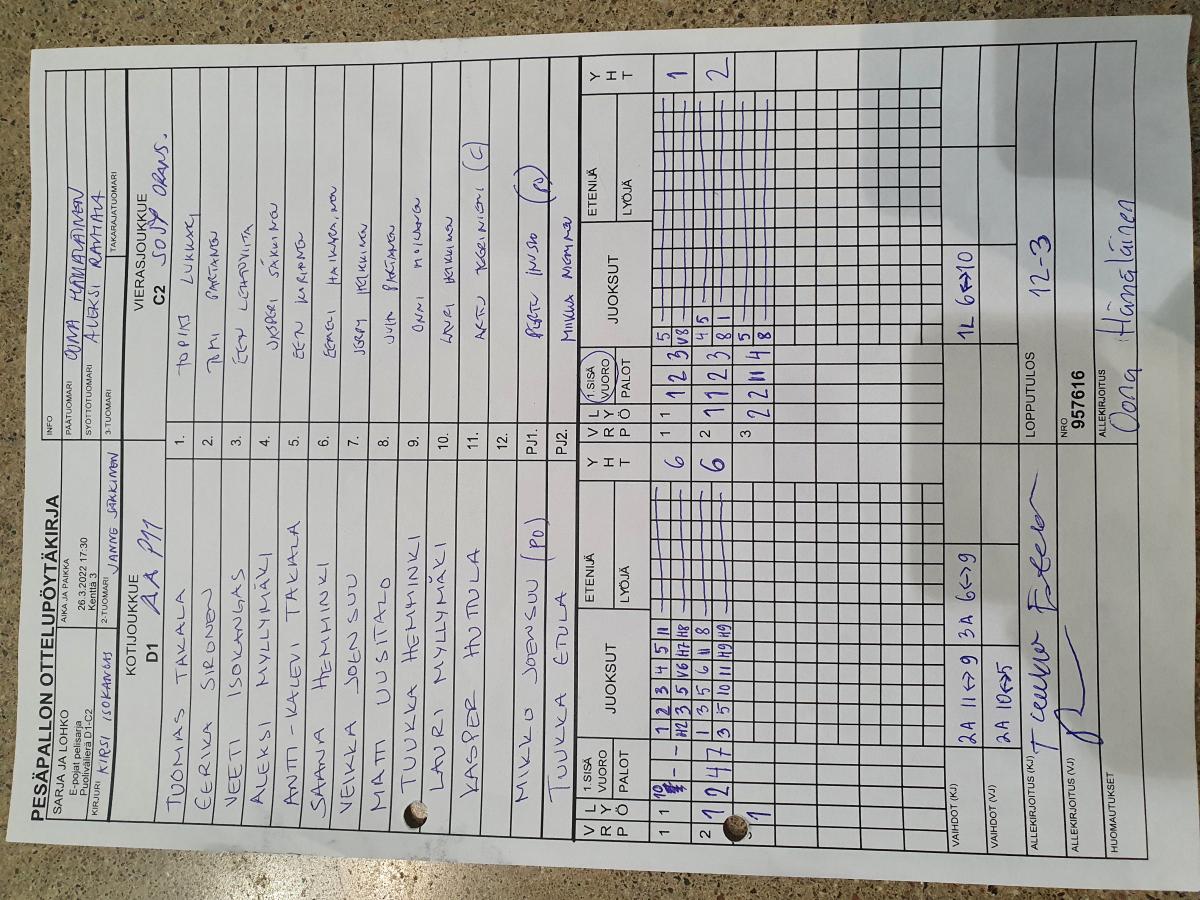 PESÄPALLON OTTELUPÖYTÄKIRJA
SARJA JA LOHKO
E-pojat pelisarja
Puolivälierä D1-C2
AIKA JA PAIKKA
26.3.2022 17:30
Kenttä 3
INFO
PÄÄTUOMARI OONA HÄMÄLÄINEN
SYÖTTÖTUOMARI ALEKSI RAUTALA
KIRJURI KIRSI ISOKANGAS
2-TUOMARI JANNE SÄKKINEN
3-TUOMARI
TAKARAJATUOMARI
KOTIJOUKKUE
D1 AA P11
VIERASJOUKKUE
C2 SOJY ORANS.
TUOMAS TAKALA 1. TOPIAS LUKKARI
EERIKA SIRONEN 2. TOMI PARTANEN
VEETI ISOKANGAS 3. EETU LEHTOVIITA
ALEKSI MYLLYMÄKI 4. JASPERI SÄKKINEN
ANTTI-KALEVI TAKALA 5. EETU KARHONEN
SAANA HEMMINKI 6. EEMELI HAIKARAINEN
VEIKKA JOENSUU 7. JEREMY HEIKKINEN
MATTI UUSITALO 8. PARTANEN
TUUKKA HEMMINKI 9. ONNI MOILANEN
LAURI MYLLYMÄKI 10. LAURI HEIKKINEN
KASPER HUTULA 11. ARTTU (C)
12.
MIKKO JOENSUU (PO) PJ1. PERTTU
TUUKKA ETULA PJ2. MIIKKA NIEMINEN
V R P L Y Ö 1.SISÄ VUORO PALOT JUOKSUT ETENIJÄ LYÖJÄ Y H T V R P L Y Ö 1.SISÄ VUORO PALOT JUOKSUT ETENIJÄ LYÖJÄ Y H T
1 1 10 - - 1 2 3 4 5 11 6 1 1 2 3 5 1
H2 3 5 V6 H7 H8 V8
2 1 2 4 7 1 3 5 6 11 8 6 2 1 1 2 3 4 5 2
3 5 10 11 H9 H9 8 1
3 1 3 2 2 11 4 5
8
VAIHDOT (KJ) 2A 11↔9 3A 6↔9 1L 6↔10
VAIHDOT (VJ) 2A 10↔5
ALLEKIRJOITUS (KJ)
LOPPUTULOS 12-3
ALLEKIRJOITUS (VJ)
NRO
957616
HUOMAUTUKSET
ALLEKIRJOITUS
Oona Hämäläinen